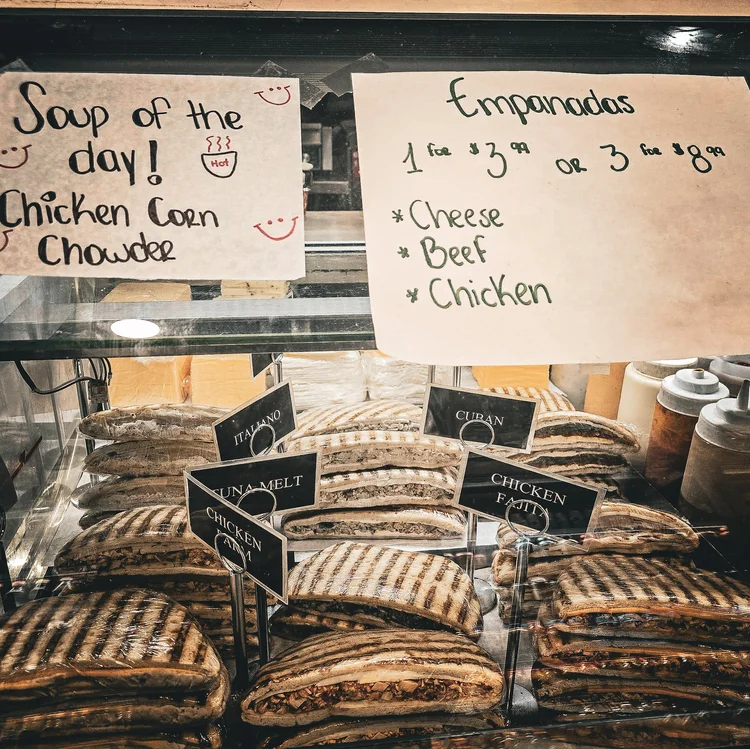 Soup of the
day!
HOT
Chicken Corn
Chowder
Empanadas
1 for $3.99 OR 3 for $8.99
* Cheese
* Beef
* Chicken
ITALIANO
CUBAN
TUNA MELT
CHICKEN
FAJITA
CHICKEN